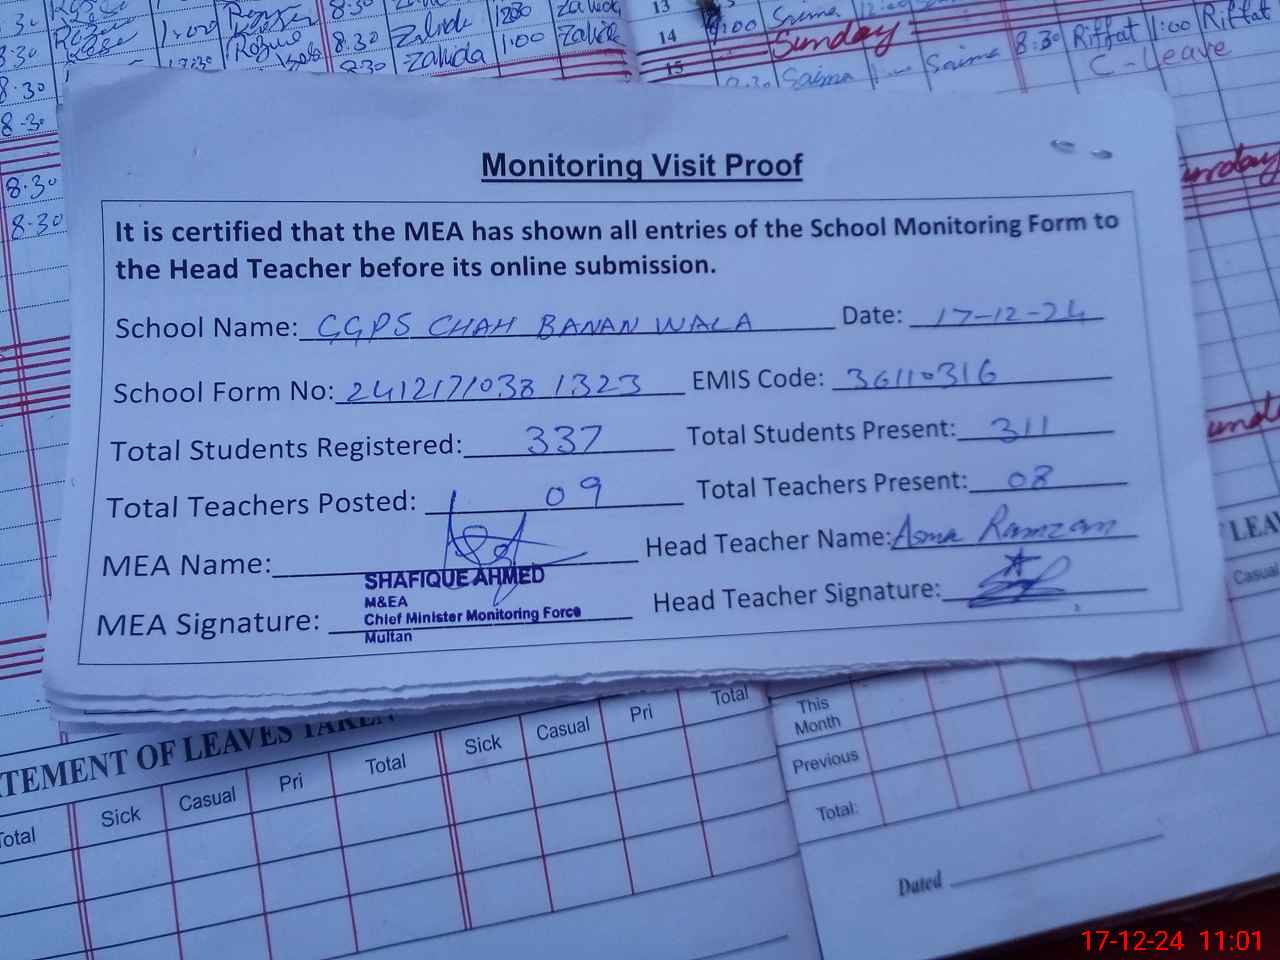 8.30 Zalida 1:00 Zalida
8.30 Zalida
13
14 9:00 Saima
Sunday
15
Saima Saima 8:30 Riffat 1:00 Riffat
C-Leave
8.30
8.30
8.30
8.30
Sunday
Monitoring Visit Proof
It is certified that the MEA has shown all entries of the School Monitoring Form to
the Head Teacher before its online submission.
School Name: GGPS CHAH BANAN WALA Date: 17-12-24
School Form No: 24121710381323 EMIS Code: 36110316
Total Students Registered: 337 Total Students Present: 311
Total Teachers Posted: 09 Total Teachers Present: 08
MEA Name: Head Teacher Name: Asma Ramzan
SHAFIQUE AHMED
M&EA
Chief Minister Monitoring Force
Multan
MEA Signature: Head Teacher Signature:
LEAV
Casual
TEMENT OF LEAVES TAKEN
Total Sick Casual Pri Total Sick Casual Pri Total
This
Month
Previous
Total:
Dated
17-12-24 11:01